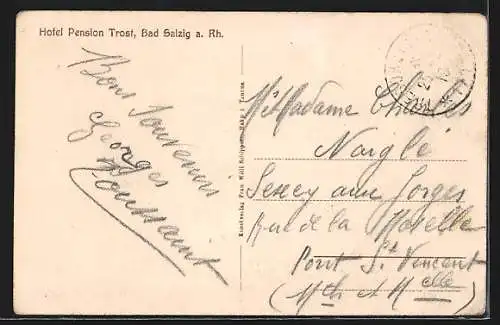 Hotel Pension Trost, Bad Salzig a. Rh.
Bons Souvenirs
Georges
Toussaint
Kunstverlag Frau Willi
Mr et Madame Charles
Naiglé
Sexey aux Forges
Rue de la Moselle
Pont St Vincent
(Mthe et Mselle)